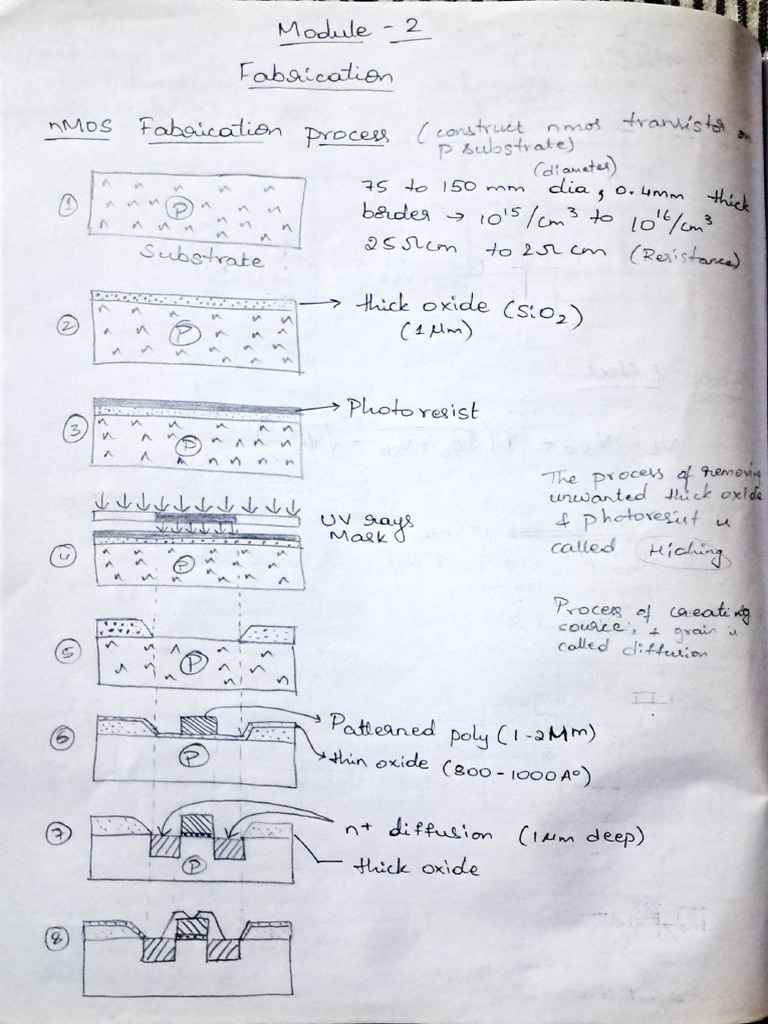 Module - 2
Fabrication
nMOS Fabrication process (construct nmos transistor on
p substrate)
(diameter)
① P
Substrate
75 to 150 mm dia, 0.4mm thick
border → 10^15/cm^3 to 10^16/cm^3
25Ωcm to 2Ωcm (Resistance)
② P
thick oxide (SiO2)
(1 μm)
③ P
Photoresist
④ P
UV rays
Mask
The process of removing
unwanted thick oxide
& photoresist is
called Hiching
⑤ P
Process of creating
source, & grain is
called diffusion
⑥ P
Patterned poly (1-2Mm)
thin oxide (800-1000A°)
⑦ P
n+ diffusion (1μm deep)
thick oxide
⑧